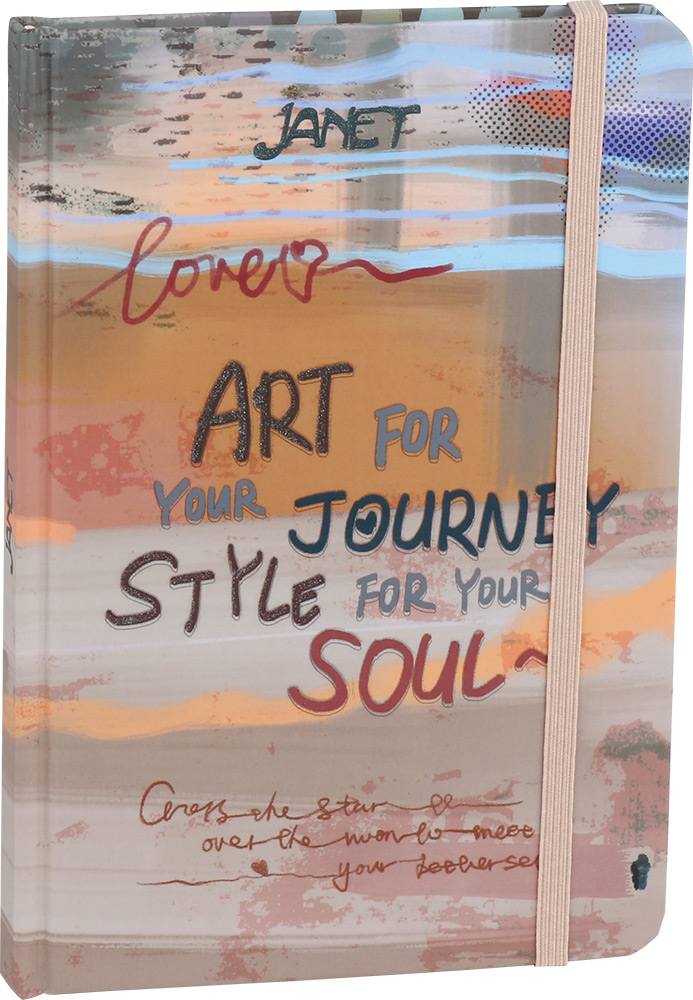 JANET
love
ART FOR
YOUR JOURNEY
STYLE FOR YOUR
SOUL~
Cross the star
over the moon to meet
your better
JANET